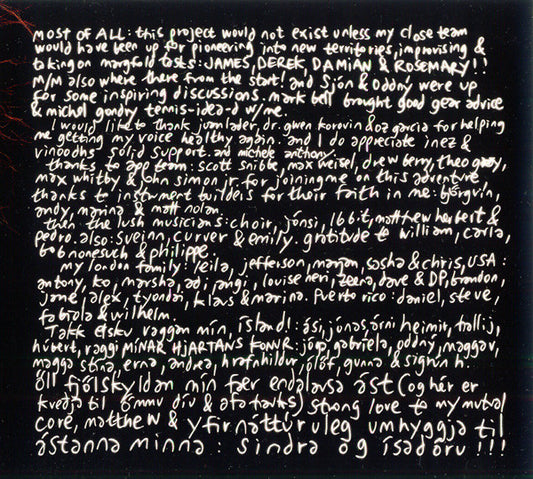 MOST OF ALL: this project would not exist unless my close team
would have been up for pioneering into new territories, improvising &
taking on manyfold tasts: JAMES, DEREK, DAMIAN & ROSEMARY!!
M/M also where there from the start! and Sjón & Oddný were up
for some inspiring discussions. mark bell brought good gear advice
& michel gondry tennis-idea-d w/me.
I would like to thank juanlader, dr. gwen korovin & oz garcia for helping
me getting my voice healthy again. and I do appreciate inez &
vinoodhs solid support. and michele anthony.
thanks to app team: scott snibbe, max weisel, drew berry, theo gray,
max whitby & john simon jr. for joining me on this adventure
thanks to instrument builders for their faith in me: björgvin,
andy, marina & matt nolan.
then the lush musicians: choir, jónsi, 16bit, matthew herbert &
pedro. also: sveinn, curver & emily. gratitude to william, carla,
bob nonesuch & philippe.
my london family: leila, jefferson, marjan, sasha & chris, USA:
antony, ko, marsha, adi, angi, louise neri, zeena, dave & DP, brandon,
jane, alex, tyondai, klaus & marina. Puerto rico: daniel, steve,
fabiola & wilhelm.
Takk elsku vaggan mín, ísland!: ási, jónas, árni heimir, halli j,
hubert, raggi MÍNAR HJARTANS KONUR: jóga gabriela, oddný, maggav,
magga stína, erna, andrea, hrafnhildur, ólöf, gunna & sigrún h.
öll fjölskyldan mín fær endalausa ást (og hér er
kveðja til ömmu diu & afa) strong love to my mutual
core, matthew & yfirnáttúruleg umhyggja til
ástanna minna: sindra og ísadóru!!!